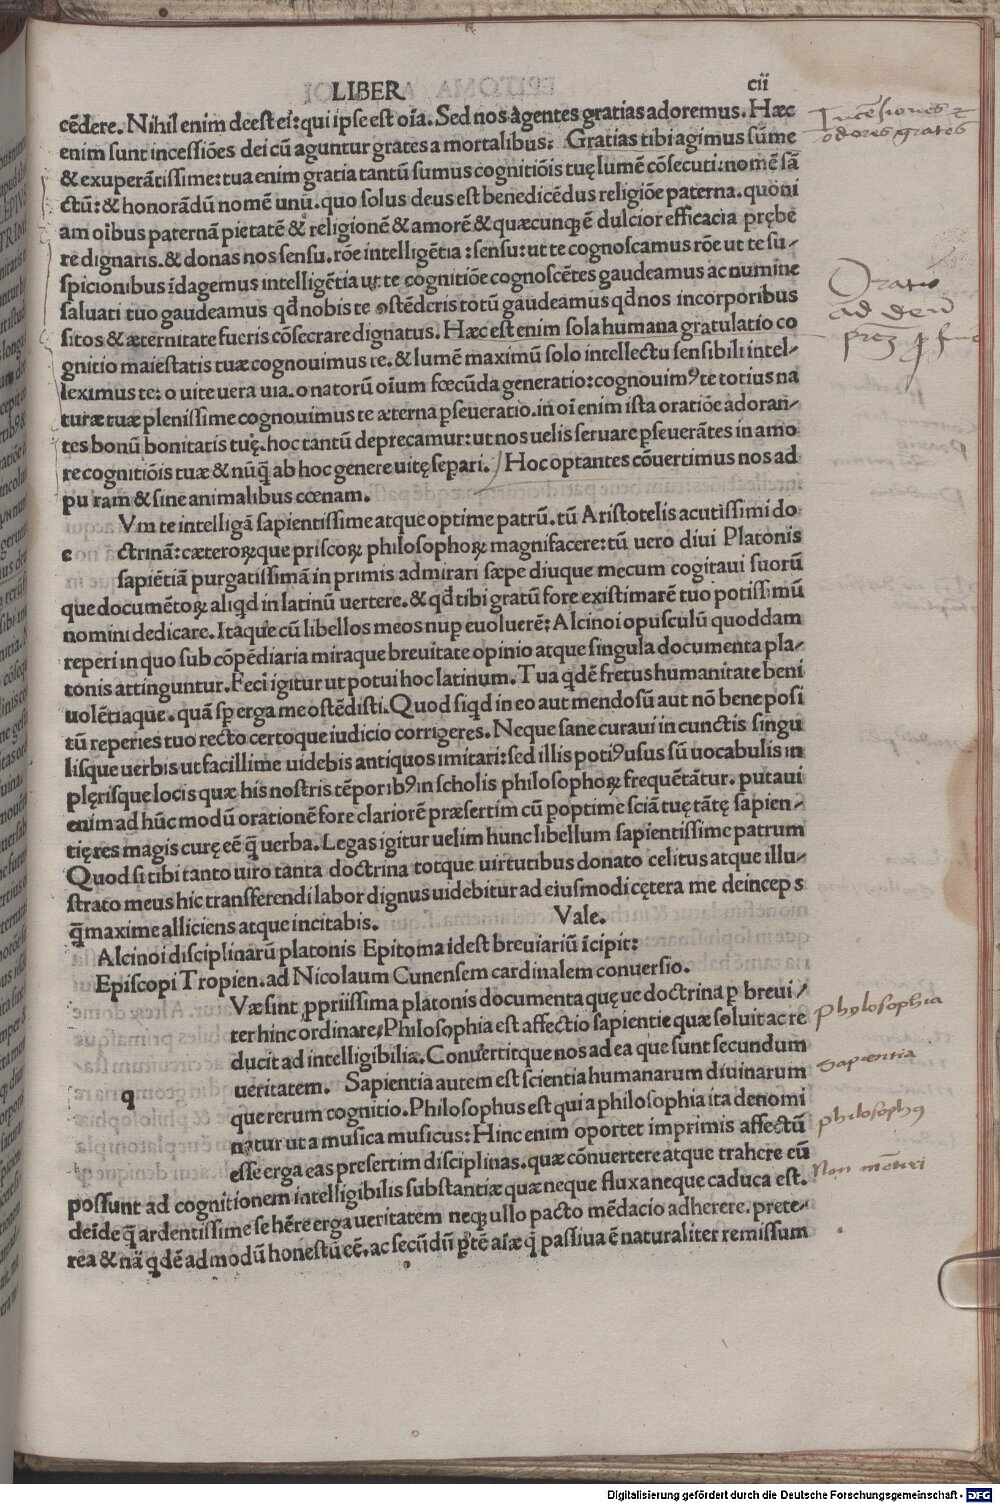 LIBER cii
cēdere. Nihil enim deest ei: qui ipse est oīa. Sed nos agentes gratias adoremus. Hæc
enim sunt incessiões dei cū aguntur grates a mortalibus: Gratias tibi agimus sūme
& exuperātissime: tua enim gratia tantū sumus cognitiōis tuę lumē cōsecuti: nomē sā
ctū: & honorādū nomē unū. quo solus deus est benedicēdus religiōe paterna. quoni
am oibus paternā pietatē & religionē & amorē & quæcunqꝫ ē dulcior efficacia prębe
re dignaris. & donas nos sensu. rōe intelligētia: sensu: ut te cognoscamus rōe ut te su-
spicionibus īdagemus intelligētia ut te cognitiōe cognoscētes gaudeamus ac numine
saluati tuo gaudeamus qđ nobis te ostēderis totū gaudeamus qđ nos incorporibus
sitos & æternitate fueris cōsecrare dignatus. Hæc est enim sola humana gratulatio co
gnitio maiestatis tuæ cognouimus te. & lumē maximū solo intellectu sensibili intel-
leximus te: o uite uera uia. o natorū oīum fœcūda generatio: cognouimꝰ te totius na
turæ tuæ plenissime cognouimus te æterna ꝑseueratio. in oī enim ista oratiōe adoran-
tes bonū bonitatis tuę. hoc tantū deprecamur: ut nos uelis seruare ꝑseuerātes in amo
re cognitiōis tuæ & nūq̄ ab hoc genere uitę separi. Hoc optantes cōuertimus nos ad
pu ram & sine animalibus cœnam.
Vm te intelligā sapientissime atque optime patrū. tū Aristotelis acutissimi do
c ctrinā: cæteroꝝ que priscoꝝ philosophoꝝ magnifacere: tū uero diui Platonis
sapiētiā purgatissimā in primis admirari sæpe diuque mecum cogitaui suorū
que documētoꝝ aliqd in latinū uertere. & qđ tibi gratū fore existimarē tuo potissimū
nomini dedicare. Itaque cū libellos meos nuꝑ euoluerē: Alcinoi opusculū quoddam
reperi in quo sub cōpēdiaria miraque breuitate opinio atque singula documenta pla-
tonis attinguntur. Feci igitur ut potui hoc latinum. Tua qdē fretus humanitate beni
uolētiaque. quā sꝑ erga me ostēdisti. Quod siqd in eo aut mendosū aut nō bene posi
tū reperies tuo recto certoque iudicio corrigeres. Neque sane curaui in cunctis singu
lisque uerbis ut facillime uidebis antiquos imitari: sed illis potiꝰ usus sū uocabulis in
plęrisque locis quæ his nostris tēporibꝰ in scholis philosophoꝝ frequētātur. putaui
enim ad hūc modū orationē fore clariorē præsertim cū ꝑoptime sciā tuę tātę sapien-
tię res magis curę eē q̄ uerba. Legas igitur uelim hunc libellum sapientissime patrum
Quod si tibi tanto uiro tanta doctrina totque uirtutibus donato celitus atque illu-
strato meus hic transferendi labor dignus uidebitur ad eiusmodi cętera me deinceps
q̄ maxime alliciens atque incitabis. Vale.
Alcinoi disciplinarū platonis Epitoma id est breuiariū īcipit:
Episcopi Tropien. ad Nicolaum Cunensem cardinalem conuersio.
Væ sint ꝓpriissima platonis documenta quę ue doctrina ꝑ breui-
ter hinc ordinare, Philosophia est affectio sapientie quæ soluit ac re
ducit ad intelligibilia. Conuertitque nos ad ea que sunt secundum
q ueritatem. Sapientia autem est scientia humanarum diuinarum
que rerum cognitio. Philosophus est qui a philosophia ita denomi
natur ut a musica musicus: Hinc enim oportet imprimis affectū
esse erga eas presertim disciplinas. quæ cōnuertere atque trahere eū
possunt ad cognitionem intelligibilis substantiæ quæ neque fluxa neque caduca est.
deīde q̄ ardentissime se hēre erga ueritatem neqꝫ ullo pacto mēdacio adherere. prete-
rea & nā qdē admodū honestū eē. ac secūdū ꝑtē aīæ q̄ passiua ē naturaliter remissum
Incēsiones &
odores grates
Oratio
ad deū
Philosophia
Sapientia
philosophꝰ
Non mētiri
Digitalisierung gefördert durch die Deutsche Forschungsgemeinschaft - DFG